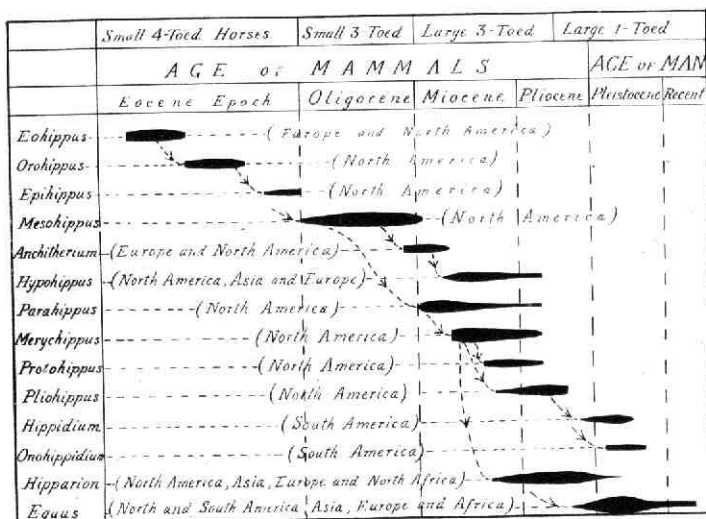 Small 4-Toed Horses Small 3 Toed Large 3-Toed Large 1-Toed
AGE OF MAMMALS AGE OF MAN
Eocene Epoch Oligocene Miocene Pliocene Pleistocene Recent
Eohippus (Europe and North America)
Orohippus (North America)
Epihippus (North America)
Mesohippus (North America)
Anchitherium (Europe and North America)
Hypohippus (North America, Asia and Europe)
Parahippus (North America)
Merychippus (North America)
Protohippus (North America)
Pliohippus (North America)
Hippidium (South America)
Onohippidium (South America)
Hipparion (North America, Asia, Europe and North Africa)
Equus (North and South America Asia, Europe and Africa)